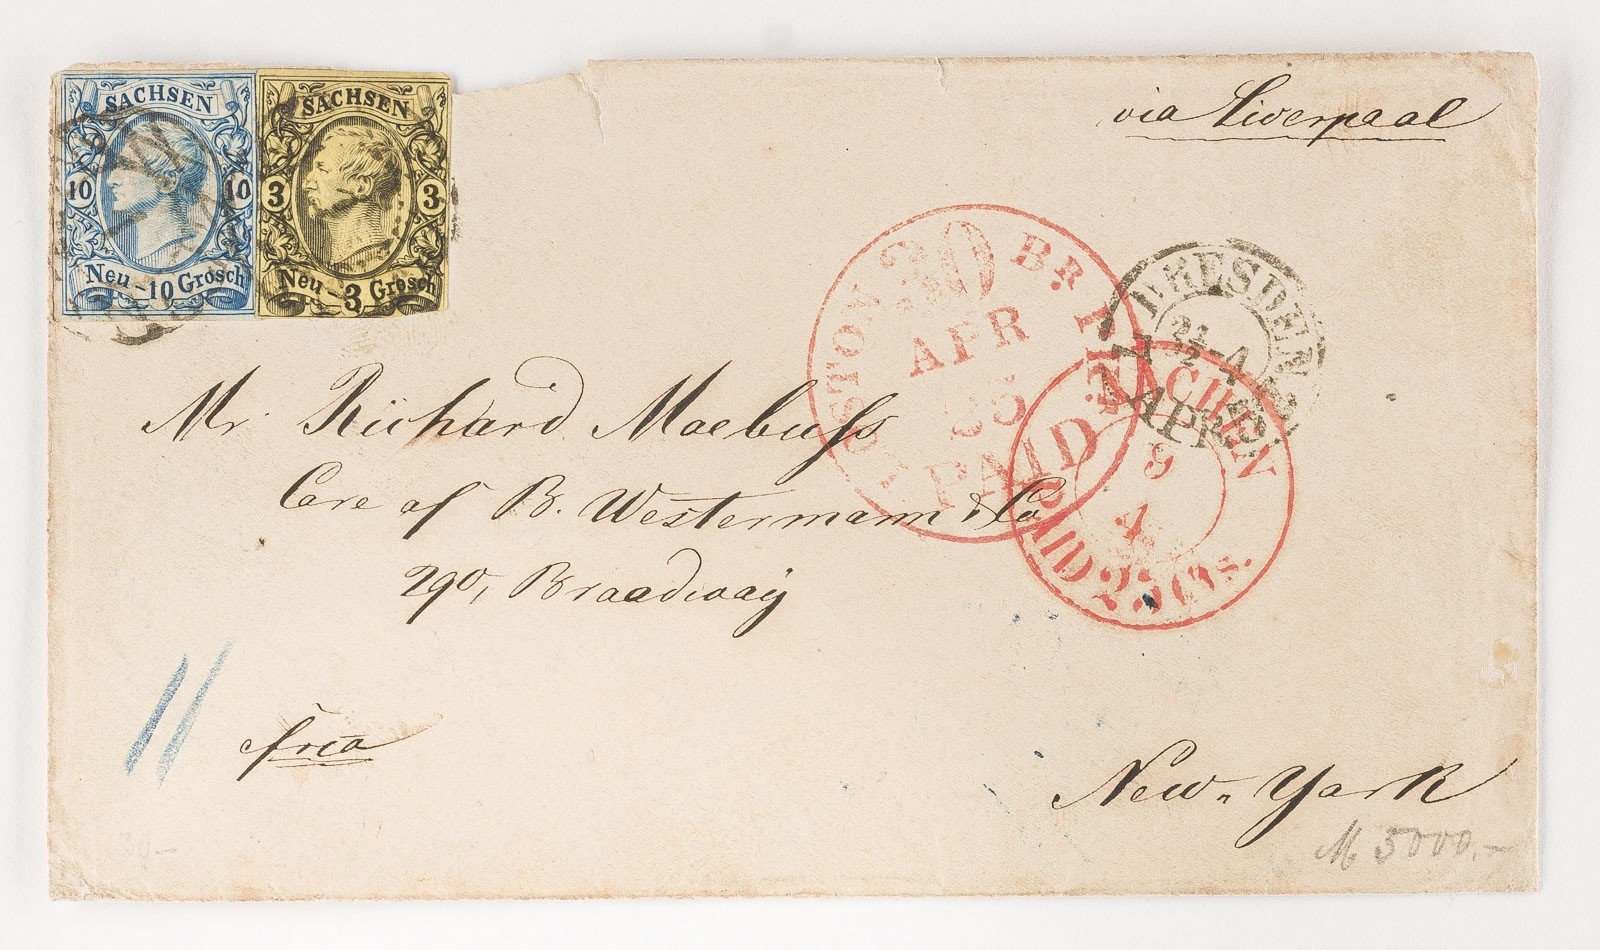 SACHSEN
10 10
Neu - 10 Grosch
SACHSEN
3 3
Neu - 3 Grosch
via Liverpaal
BOSTON BR. PKT.
30
APR
PAID
DRESDEN
APR.
AACHEN
9
4
PAID 25 Cts.
Mr. Richard Moebuss
Care of B. Westermann & Co
290, Broadway
frco
New-York
M 5000.-